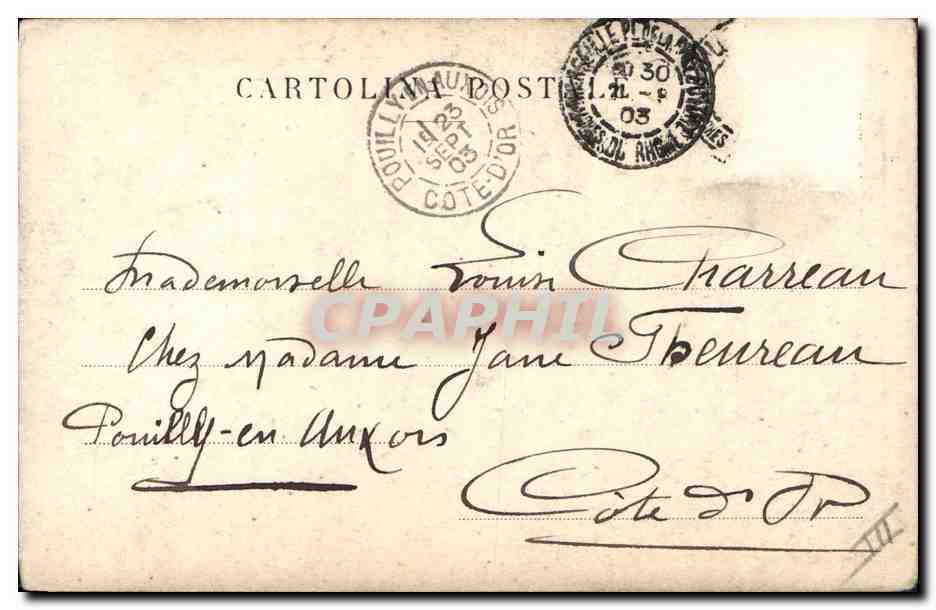 CARTOLINA POSTALE
POUILLY-EN-AUXOIS
23
SEPT
03
COTE-D'OR
MARSEILLE PL. DE LA
30
03
DU RHONE
Mademoiselle Louise Charreau
Chez Madame Jane Theureau
Pouilly-en Auxois
Côte d'Or
III
CPAPHIL